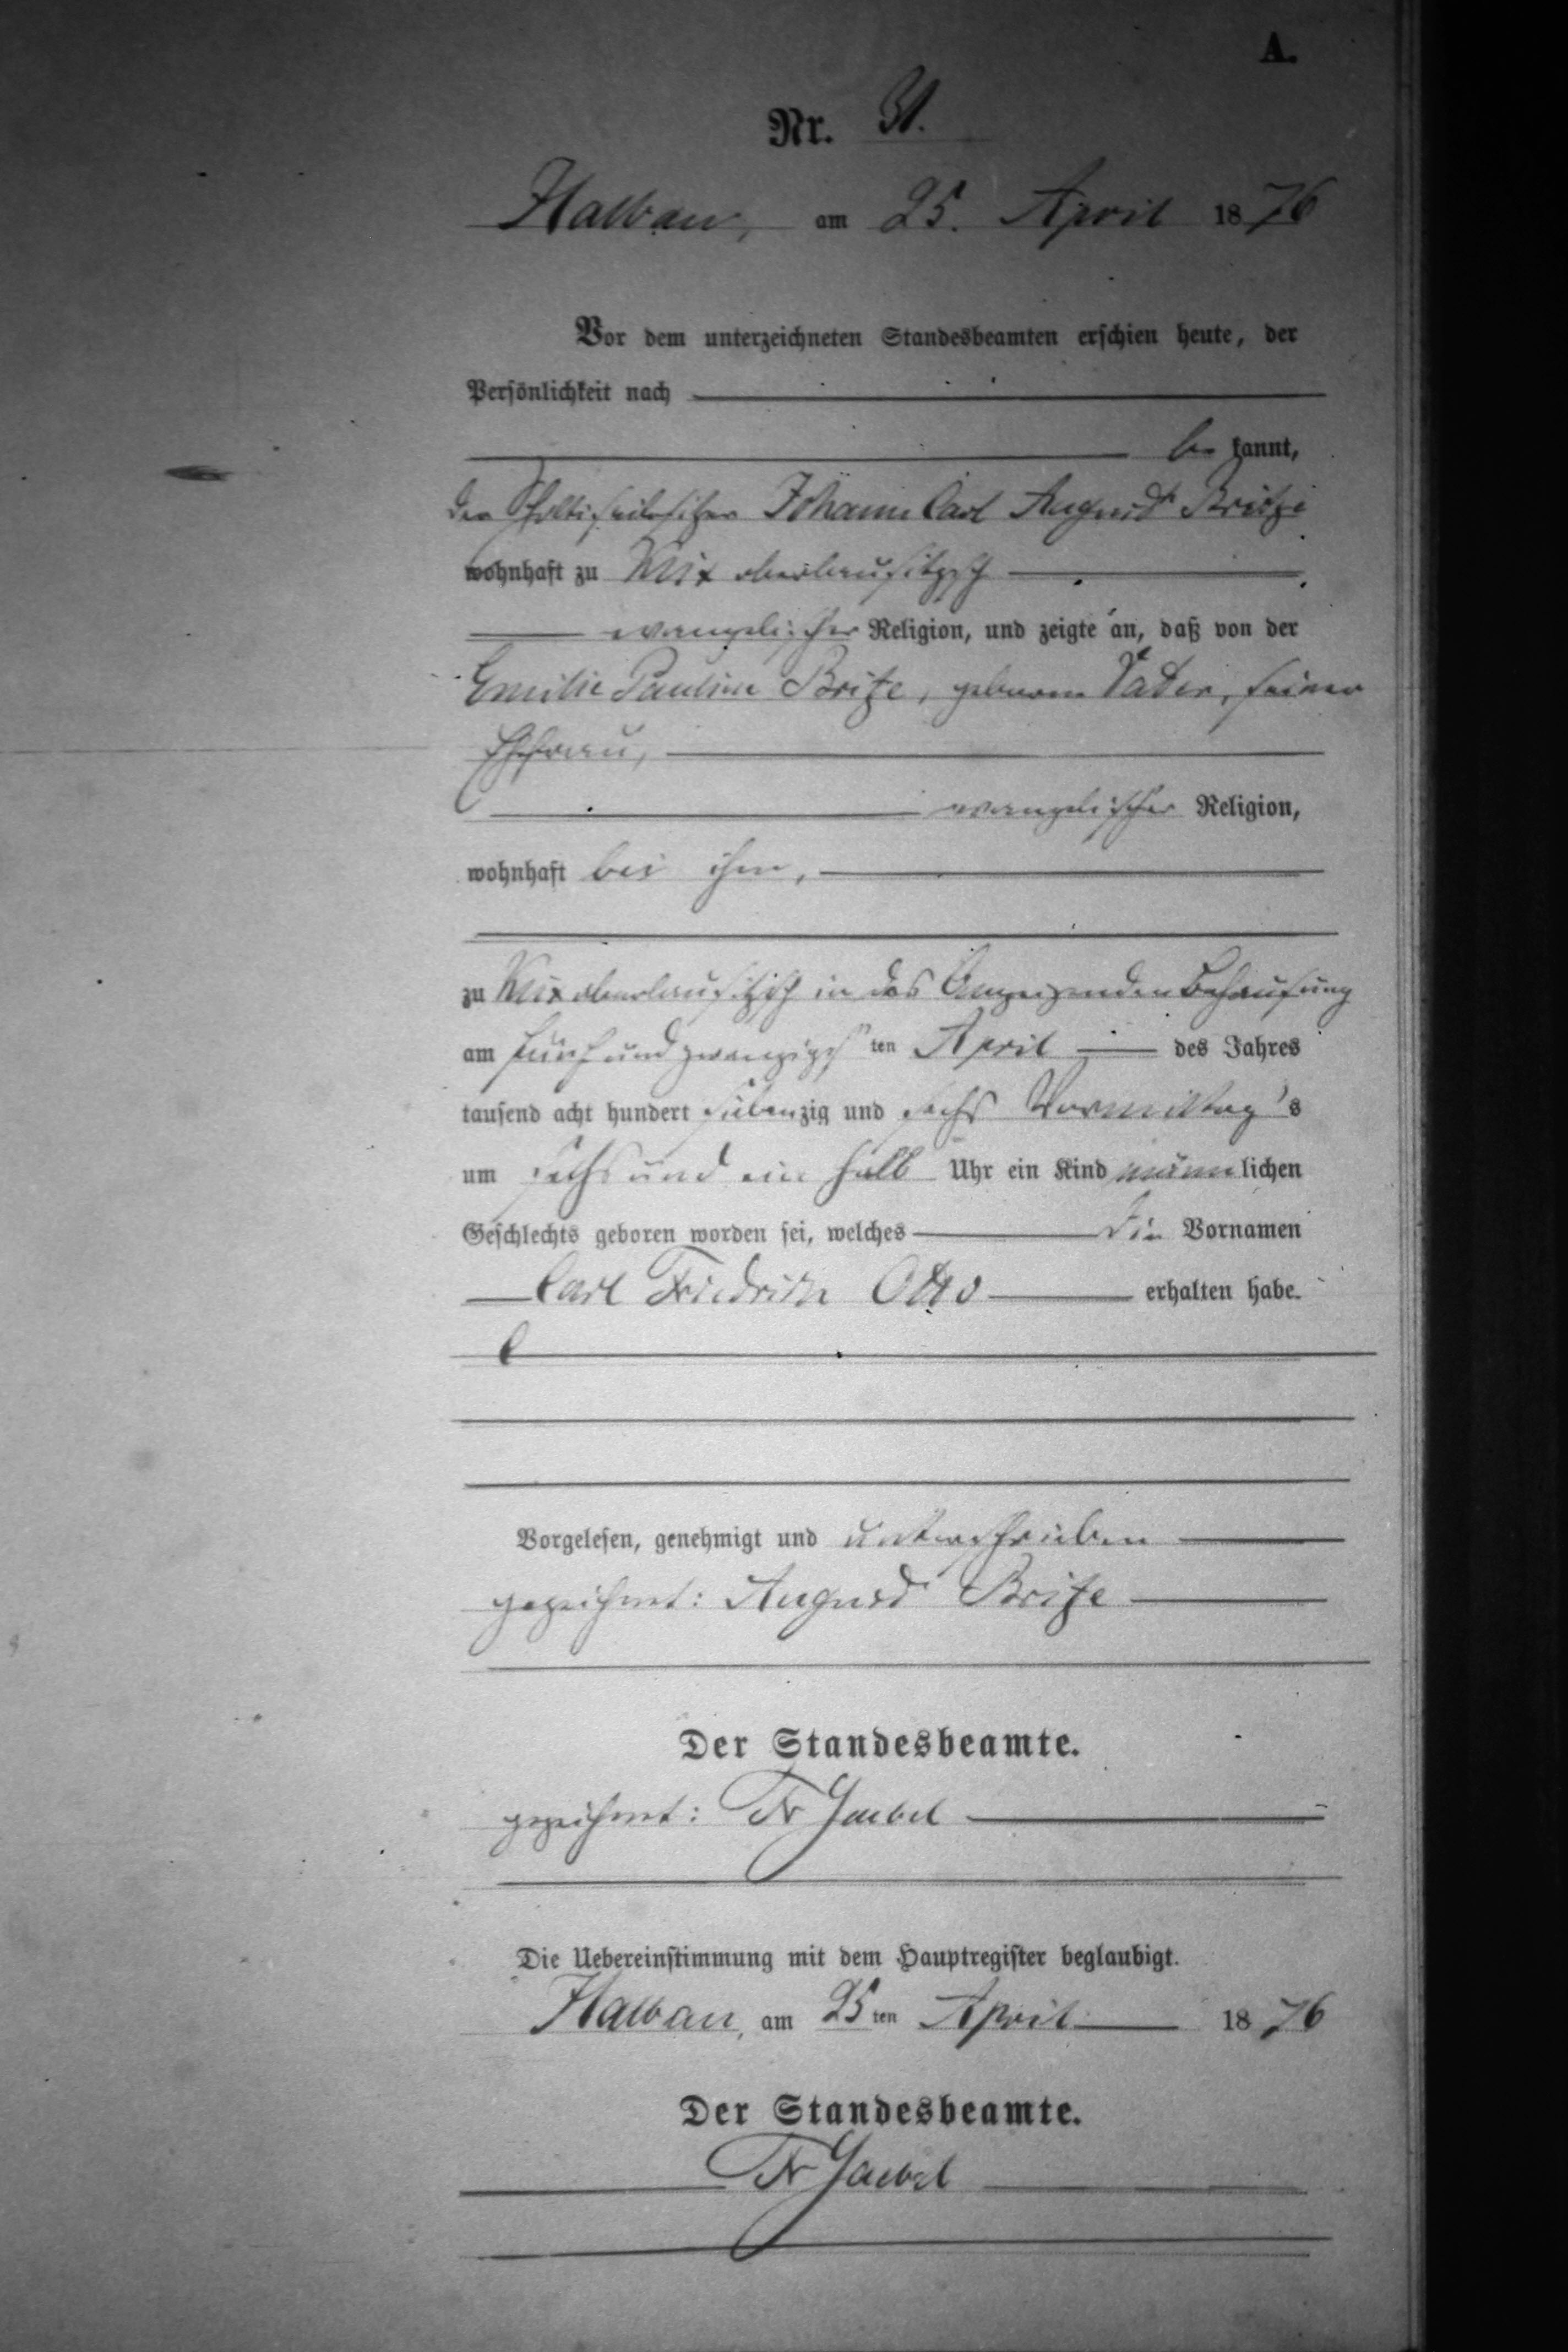 A.
Nr. 31.
Halbau, am 25. April 1876
Vor dem unterzeichneten Standesbeamten erschien heute, der
Persönlichkeit nach
be kannt,
der Scholtiseibesitzer Johann Carl August Britze
wohnhaft zu Kux oberlausitzsch
evangelischer Religion, und zeigte an, daß von der
Emilie Pauline Britze, geborene Vater, seiner
Ehefrau,
evangelischer Religion,
wohnhaft bei ihm,
zu Kux oberlausitzsch in des Anzeigenden Behausung
am fünf und zwanzigsten April des Jahres
tausend acht hundert siebenzig und sechs Vormittag's
um sechs und ein halb Uhr ein Kind männlichen
Geschlechts geboren worden sei, welches die Vornamen
Carl Friedrich Otto erhalten habe.
Vorgelesen, genehmigt und unterschrieben
gezeichnet: August Britze
Der Standesbeamte.
gezeichnet: Fr
Die Uebereinstimmung mit dem Hauptregister beglaubigt.
Halbau, am 25ten April 1876
Der Standesbeamte.
Fr